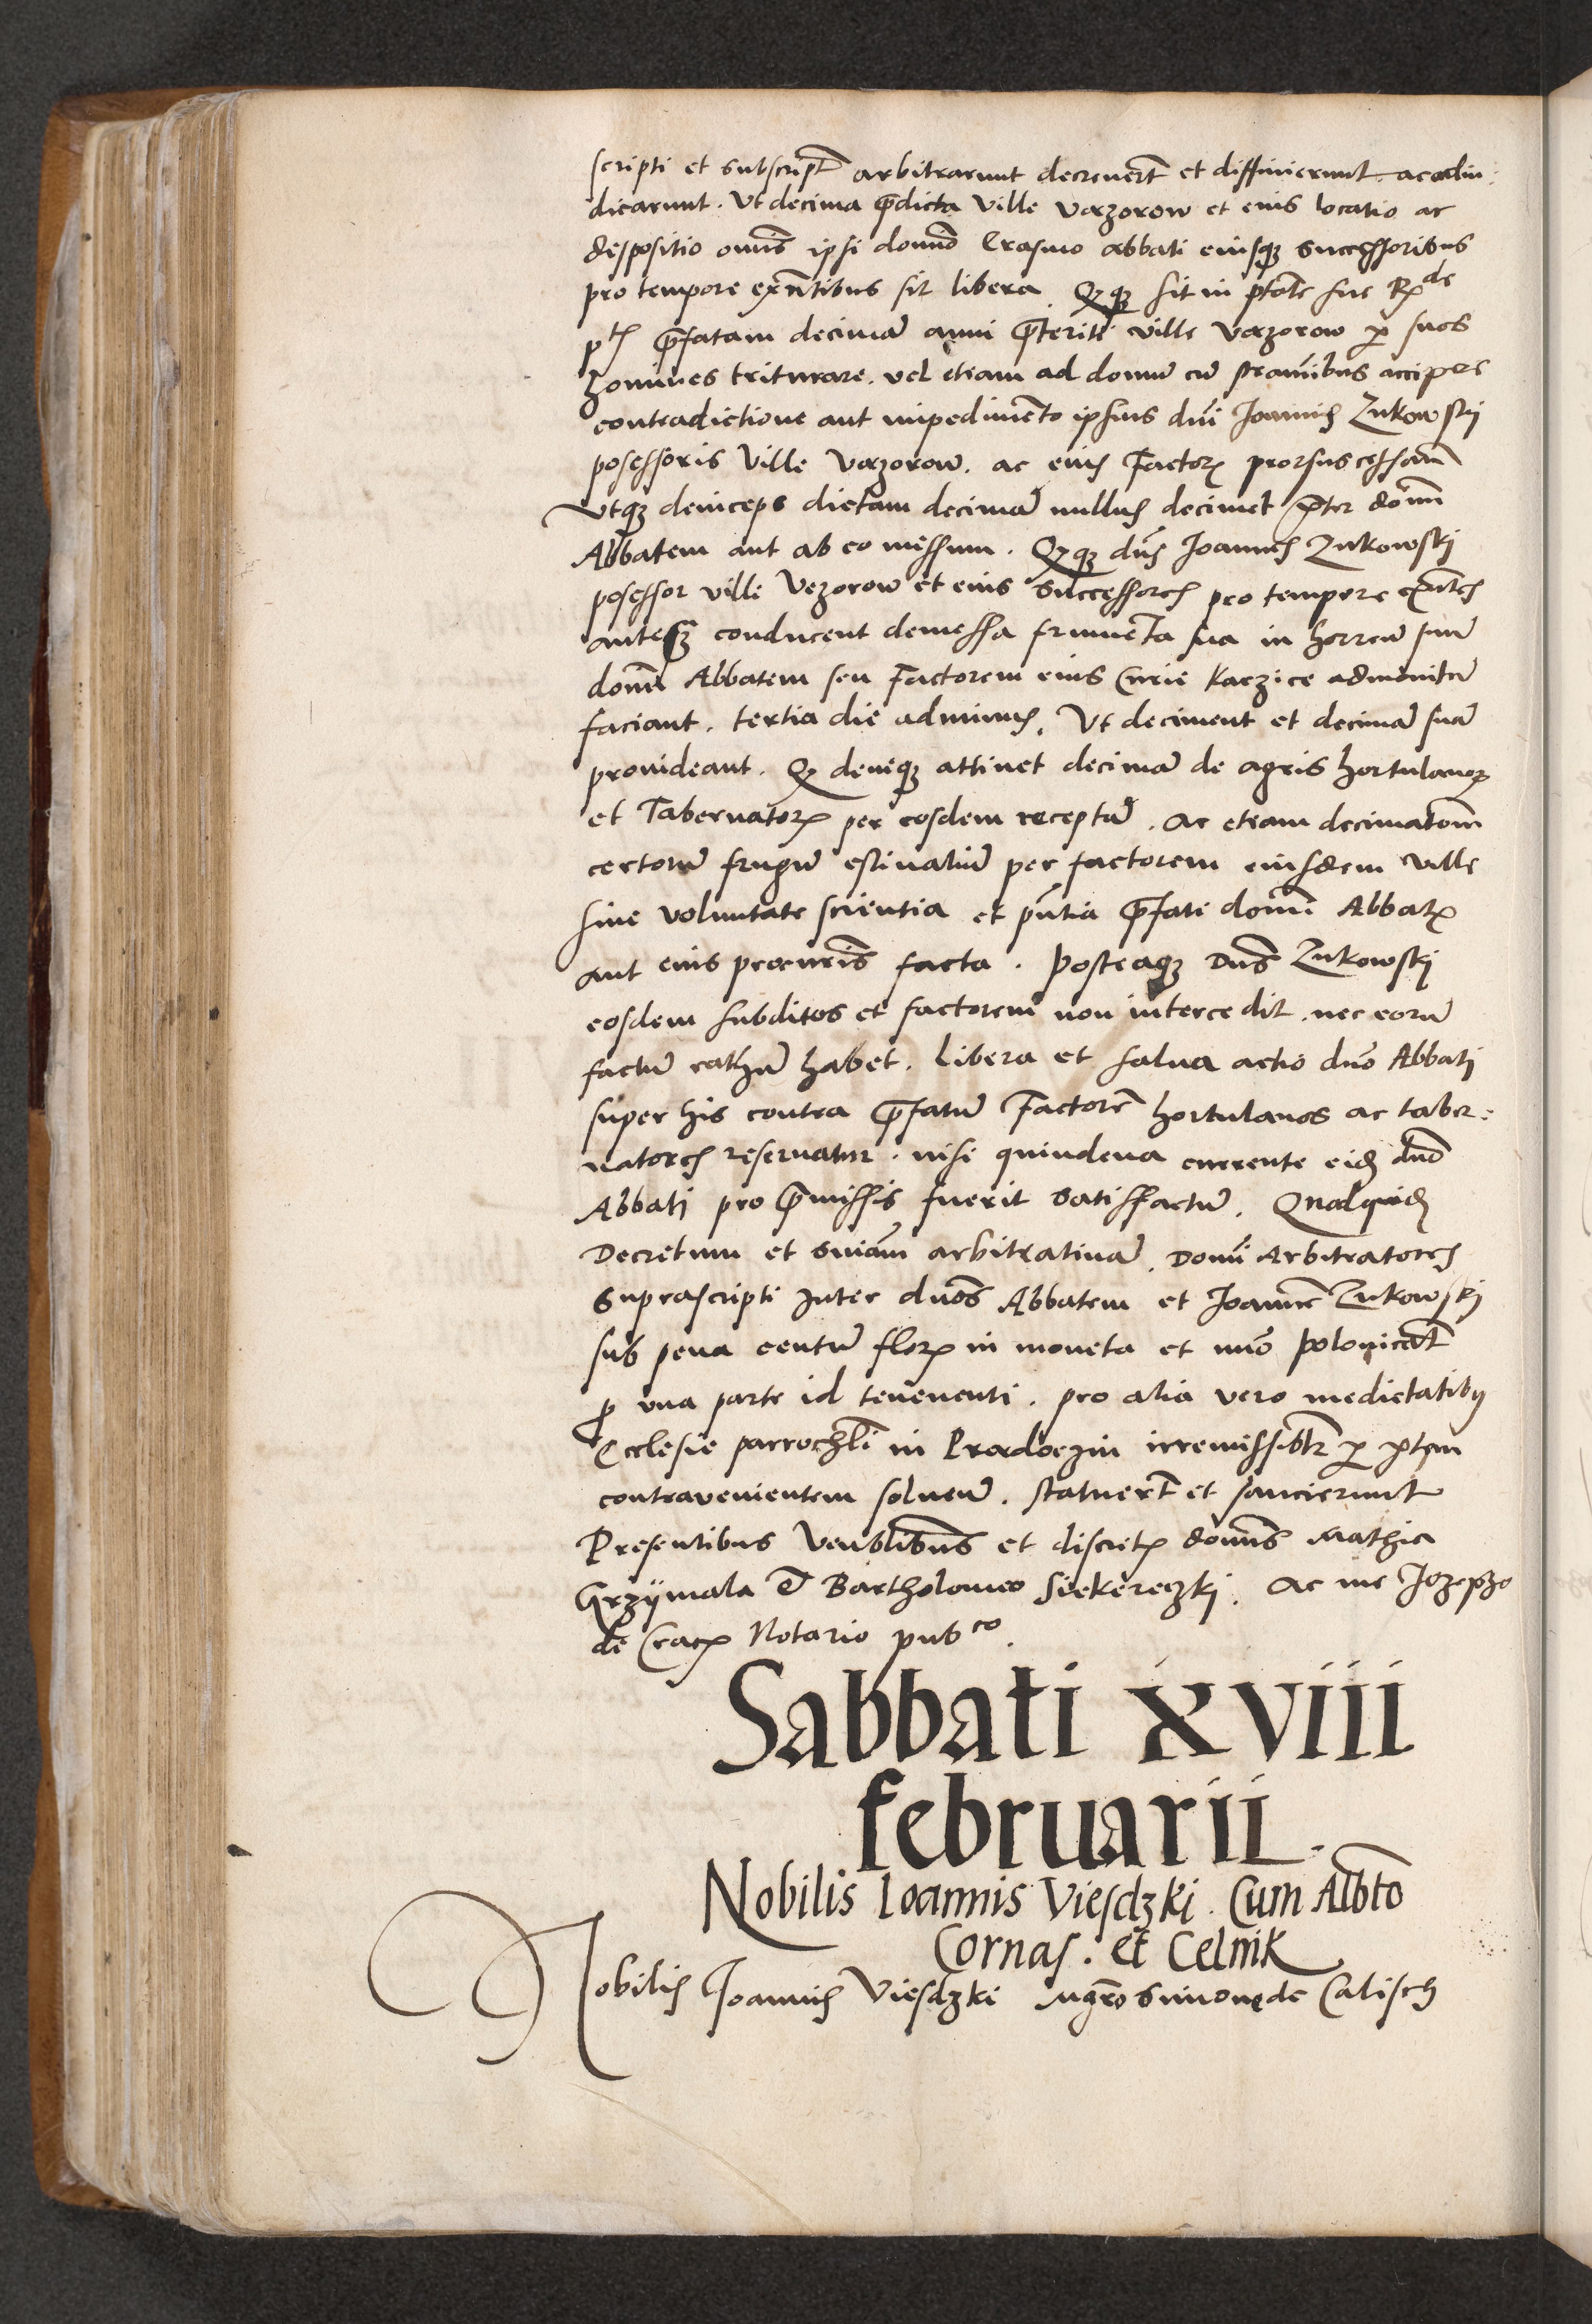 scripti et subscript̃ arbitrarunt decreuert̃ et diffinierunt ac adiu-
dicarunt. Vt decima p̃dicta Ville Vazorow et eius locatio ac
dispositio om̃is ipsi domño Erasmo abbati eiusqȝ successoribus
pro tempore exñtibus sit libera. Qȝ qȝ sit in ptãte sue Rde
ptis p̃fatam decimã anni p̃teriti ville Vazorow p suos
homines triturare. vel etiam ad domũ cũ stramĩbus accipere
contradictione aut impedimẽto ipsius dñi Joannis Zukowskj
posessoris Ville Vazorow. ac eius Factorꝝ prorsus cessañ
Vtqȝ deinceps dictam decimã nullus decimet p̃ter domñ
Abbatem aut ab eo missum. Qȝ qȝ dñs Joannes Zukowskj
posessor ville Vezorow et eius Successores pro tempore exñtes
anteqȝ conducent demessa frumẽta sua in horreũ suũ
domñ Abbatem seu Factorem eius Curie Kaczice admonitũ
faciant. tertia die adminus. Vt deciment et decimã suã
prouideant. Qȝ deniqȝ attinet decimã de agris hortulanorꝝ
et Tabernatorꝝ per eosdem receptã. Ac etiam decimatiom̃
certorũ frugũ estiualiũ per factorem eiusdem Ville
sine voluntate scientia et pñtia p̃fati domñi Abbatꝭ
aut eius procurĩs facta. Posteaqȝ Dñs Zukowskj
eosdem subditos et factorem non intercedit. nec eorũ
factũ rathũ habet. Libera et salua actio dño Abbati
super his contra p̃fatũ Factorẽ hortulanos ac taber-
natores reseruatur. nisi quindena currente eidȝ dño
Abbati pro p̃missis fuerit satisfactũ. Quodquidȝ
Decretum et sniãm arbitratiuã. Domñi Arbitratores
Suprascripti Inter dños Abbatem et Joannẽ Zukowskj
sub pena centũ florꝝ in moneta et nũo polonicat̃
p vna parte id tenenti. pro alia vero medietatibꝰ
Ecclesie parrochl̃i in Pradoczin irremissibl̃r p ptem
contravenientem soluen̄. statuert̃ et sancierunt
Presentibus Venblibus et discretꝭ domñs Mathia
Grzÿmala et Bartholomeo Siekereczkj. Ac me Jozepho
de Cracꝭ Notario pubco.
Sabbati xviii
februarii.
Nobilis Ioannis Viesdzki. Cum Albto
Cornas. et Celnik
Nobilis Joannis Viesdzki Mgr̃o Simone de Calisch